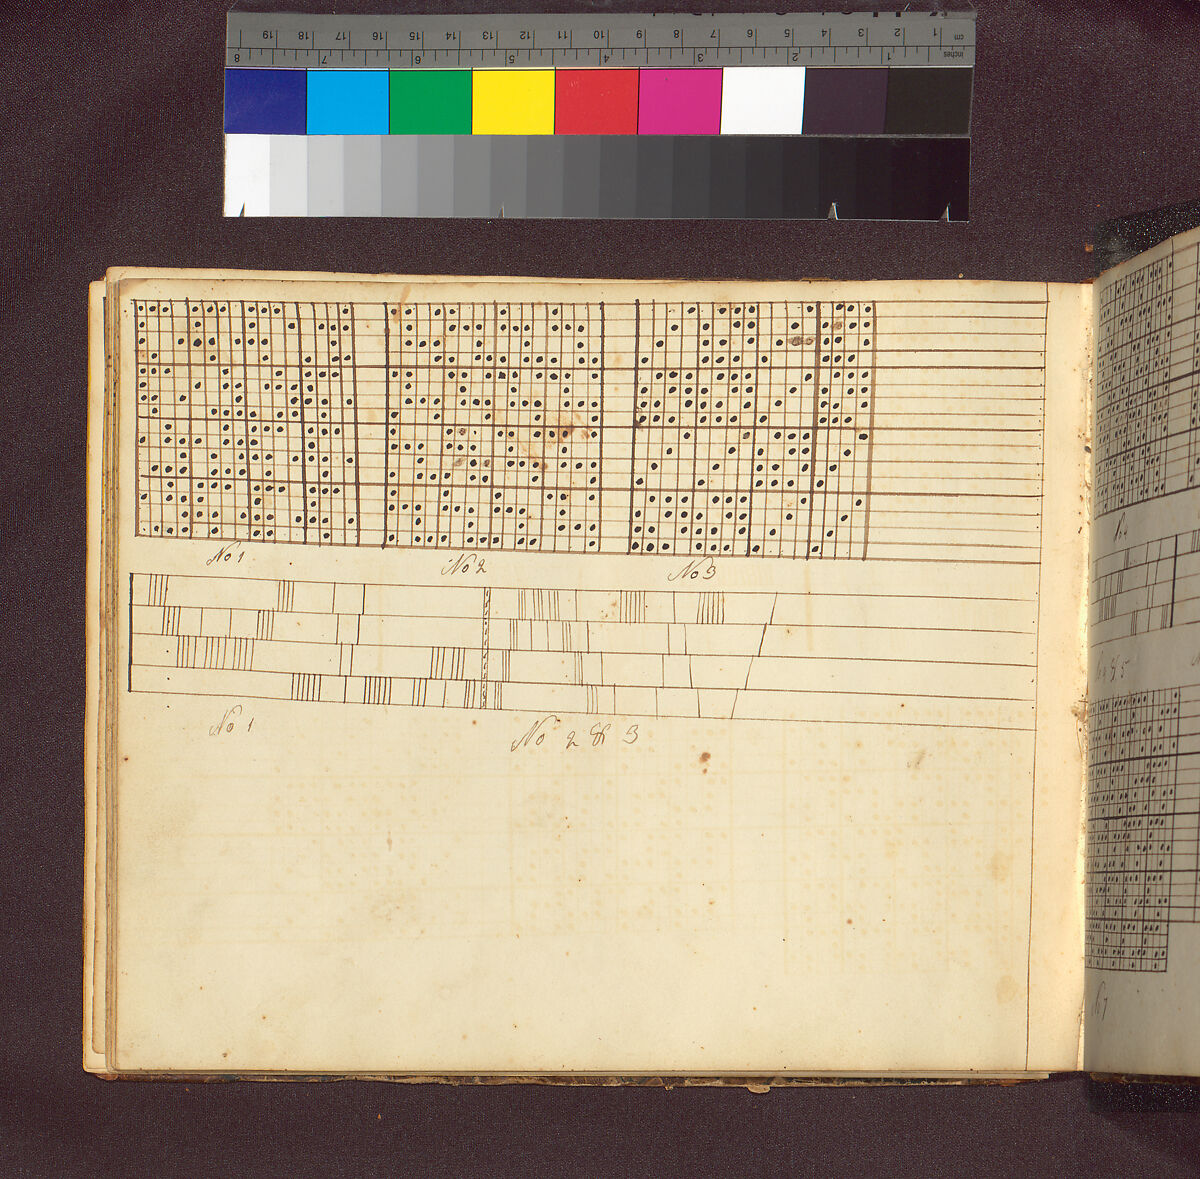 19 18 17 16 15 14 13 12 11 10 9 8 7 6 5 4 3 2 1 cm
8 7 6 5 4 3 2 1 inches
No 1 No 2 No 3
No 1 No 2 & 3